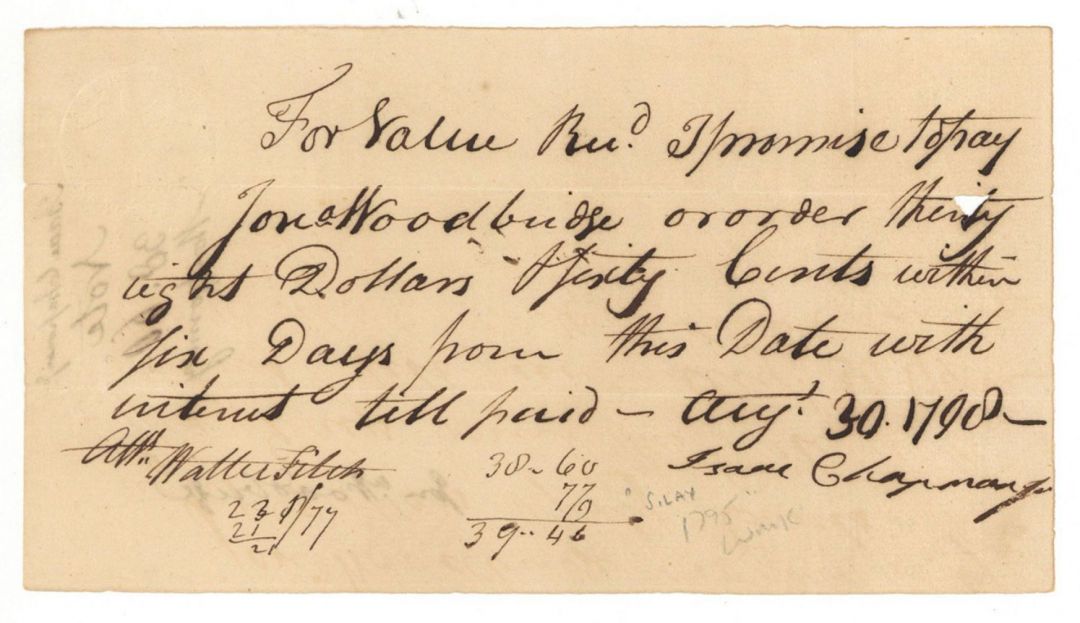 For Value Recd. I promise to pay
Jona Woodbridge or order thirty
eight Dollars & sixty Cents within
six Days from this Date with
interest till paid — Augt. 30. 1798 —
Attt. Walter Fitch
38 – 60
Isaac Chapman Jr
77
39 .. 46
S. LAY
1795
Note